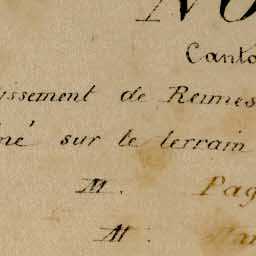 NO
Canto
issement de Rennes
né sur le terrain
M. Pag
M.